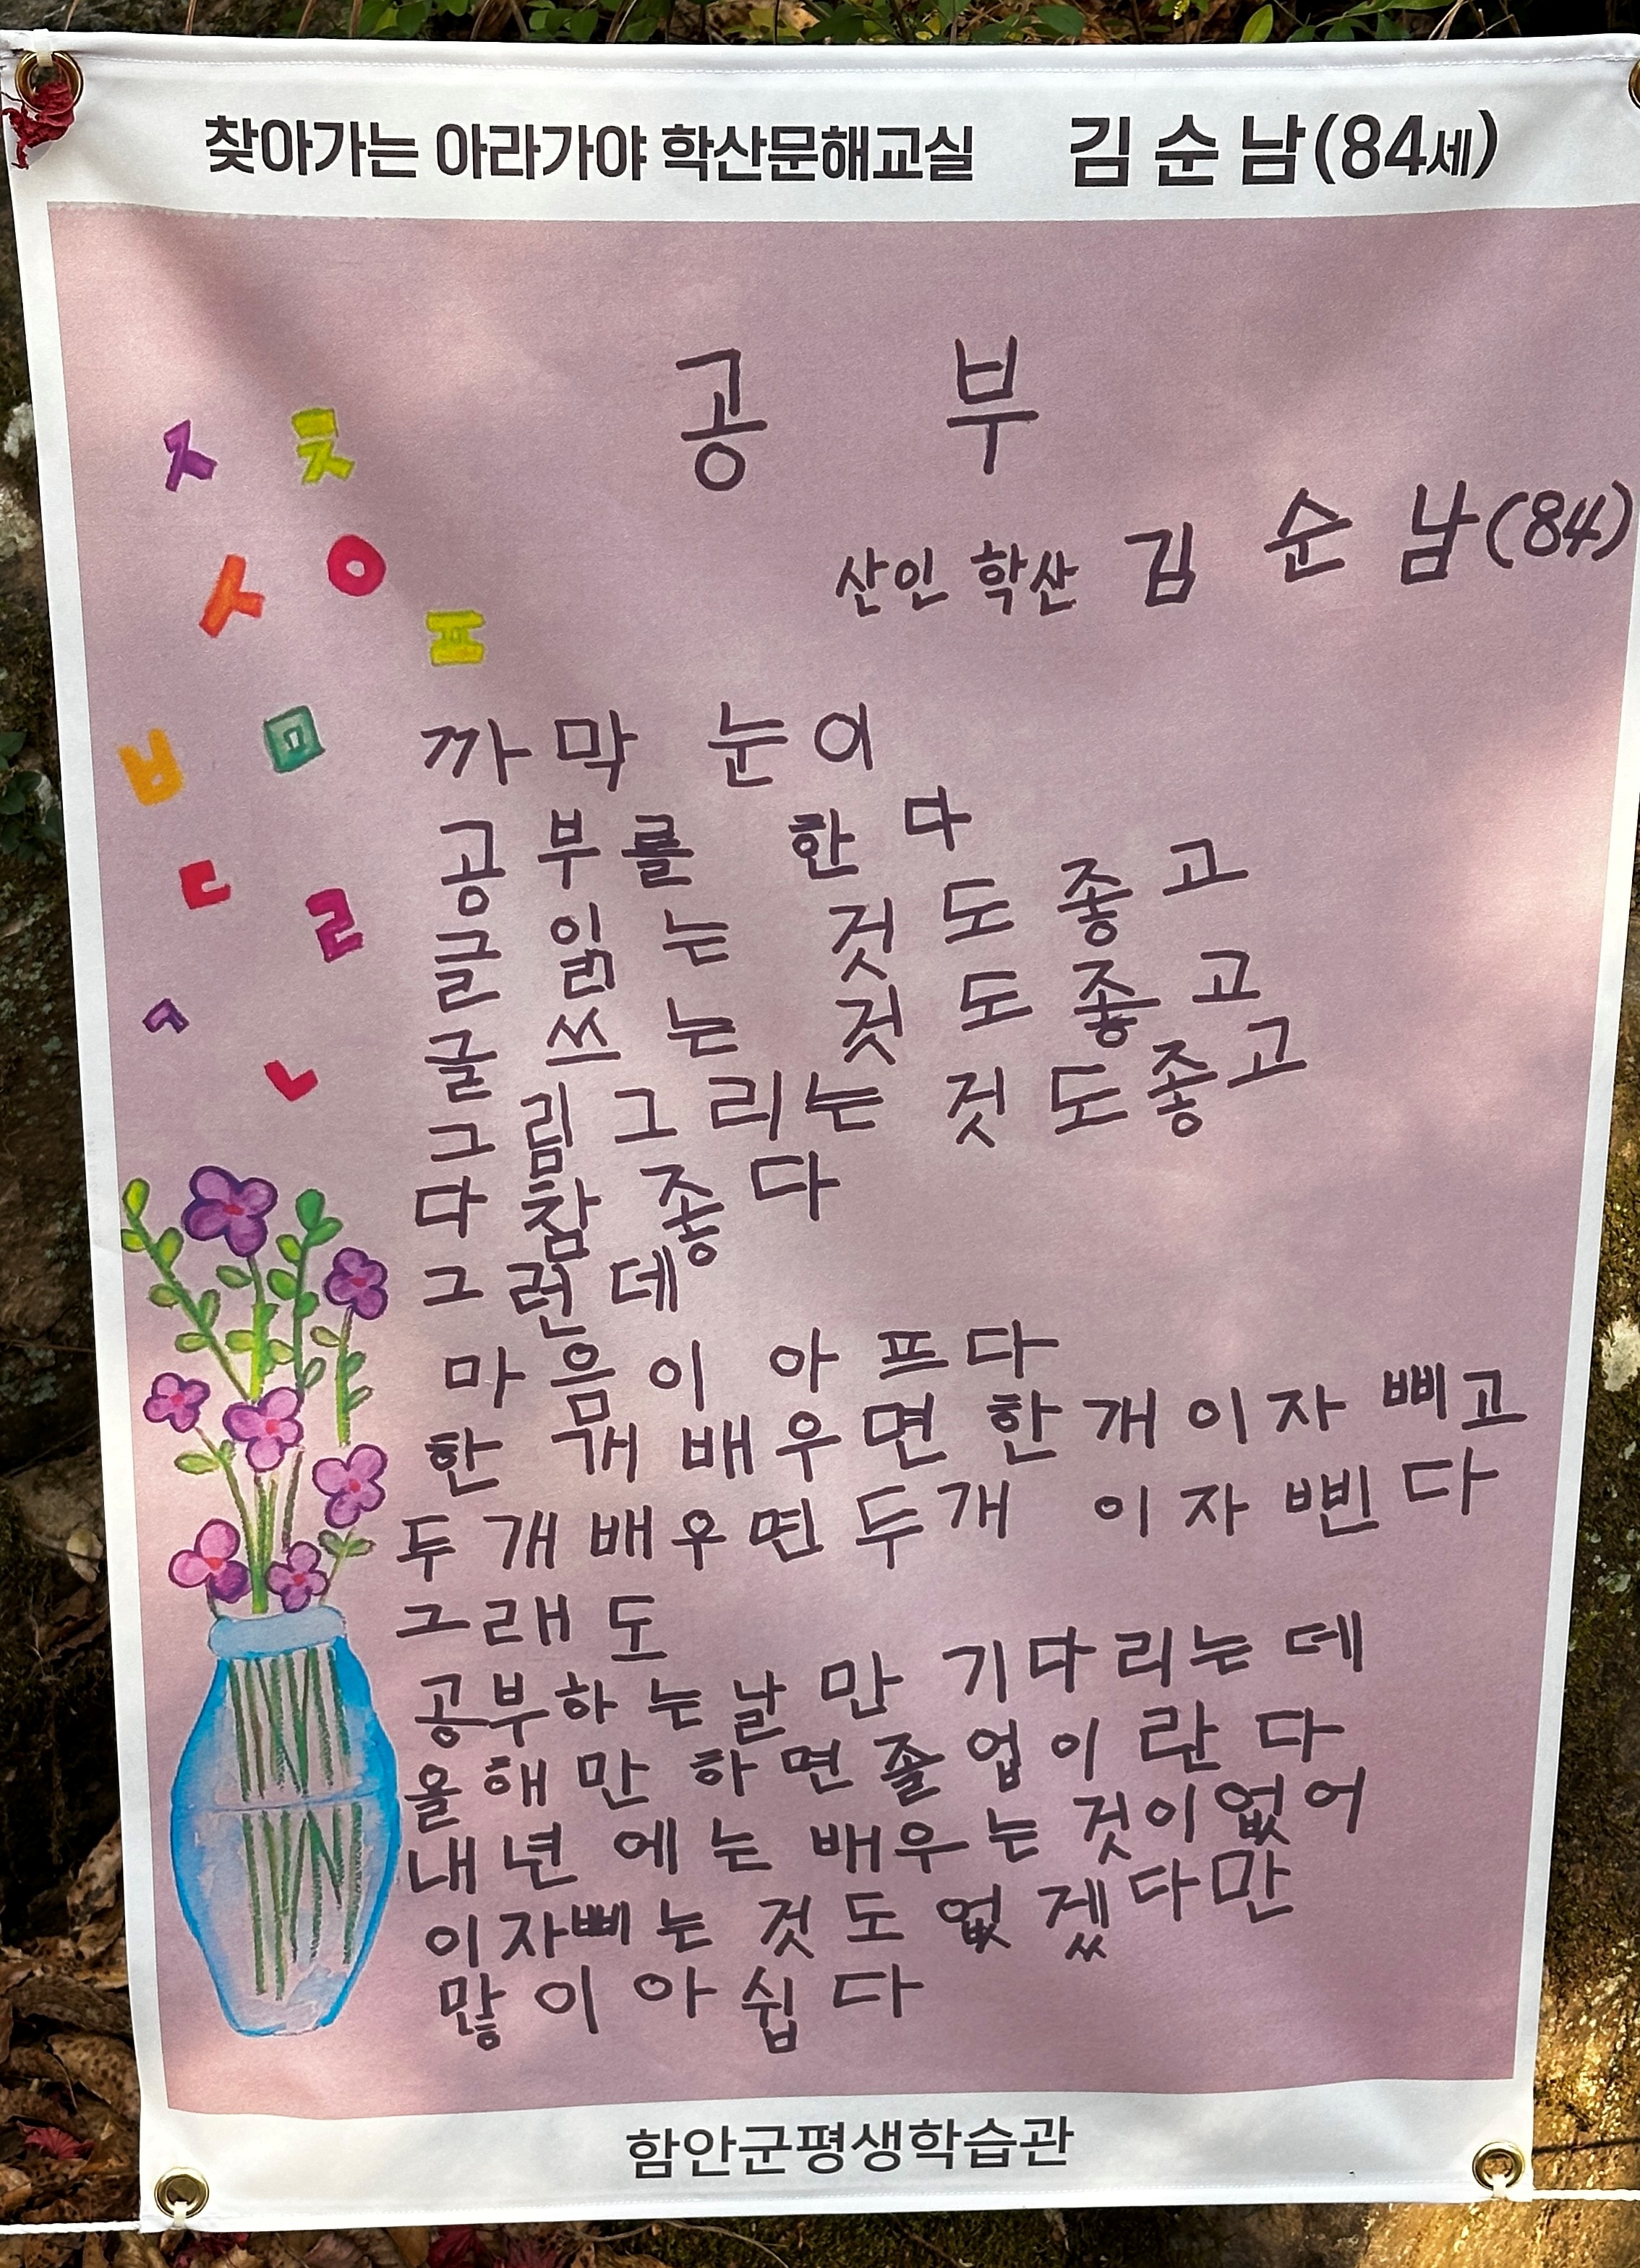 찾아가는 아라가야 학산문해교실 김순남(84세)
공부
산인 학산 김순남(84)
ㅈ ㅊ
ㅅ ㅇ
ㅍ
ㅂ ㅁ
ㄷ ㄹ
ㄱ
ㄴ
까막 눈이
공부를 한다
글 읽는 것도 좋고
글 쓰는 것도 좋고
그림그리는 것도좋고
다 참 좋다
그런데
마음이 아프다
한 개 배우면 한개이자 삐고
두개배우면두개 이자 삔다
그래도
공부하는날만 기다리는데
올해만 하면졸업이란다
내년에는 배우는 것이없어
이자삐는 것도 없겠다만
많이아쉽다
함안군평생학습관